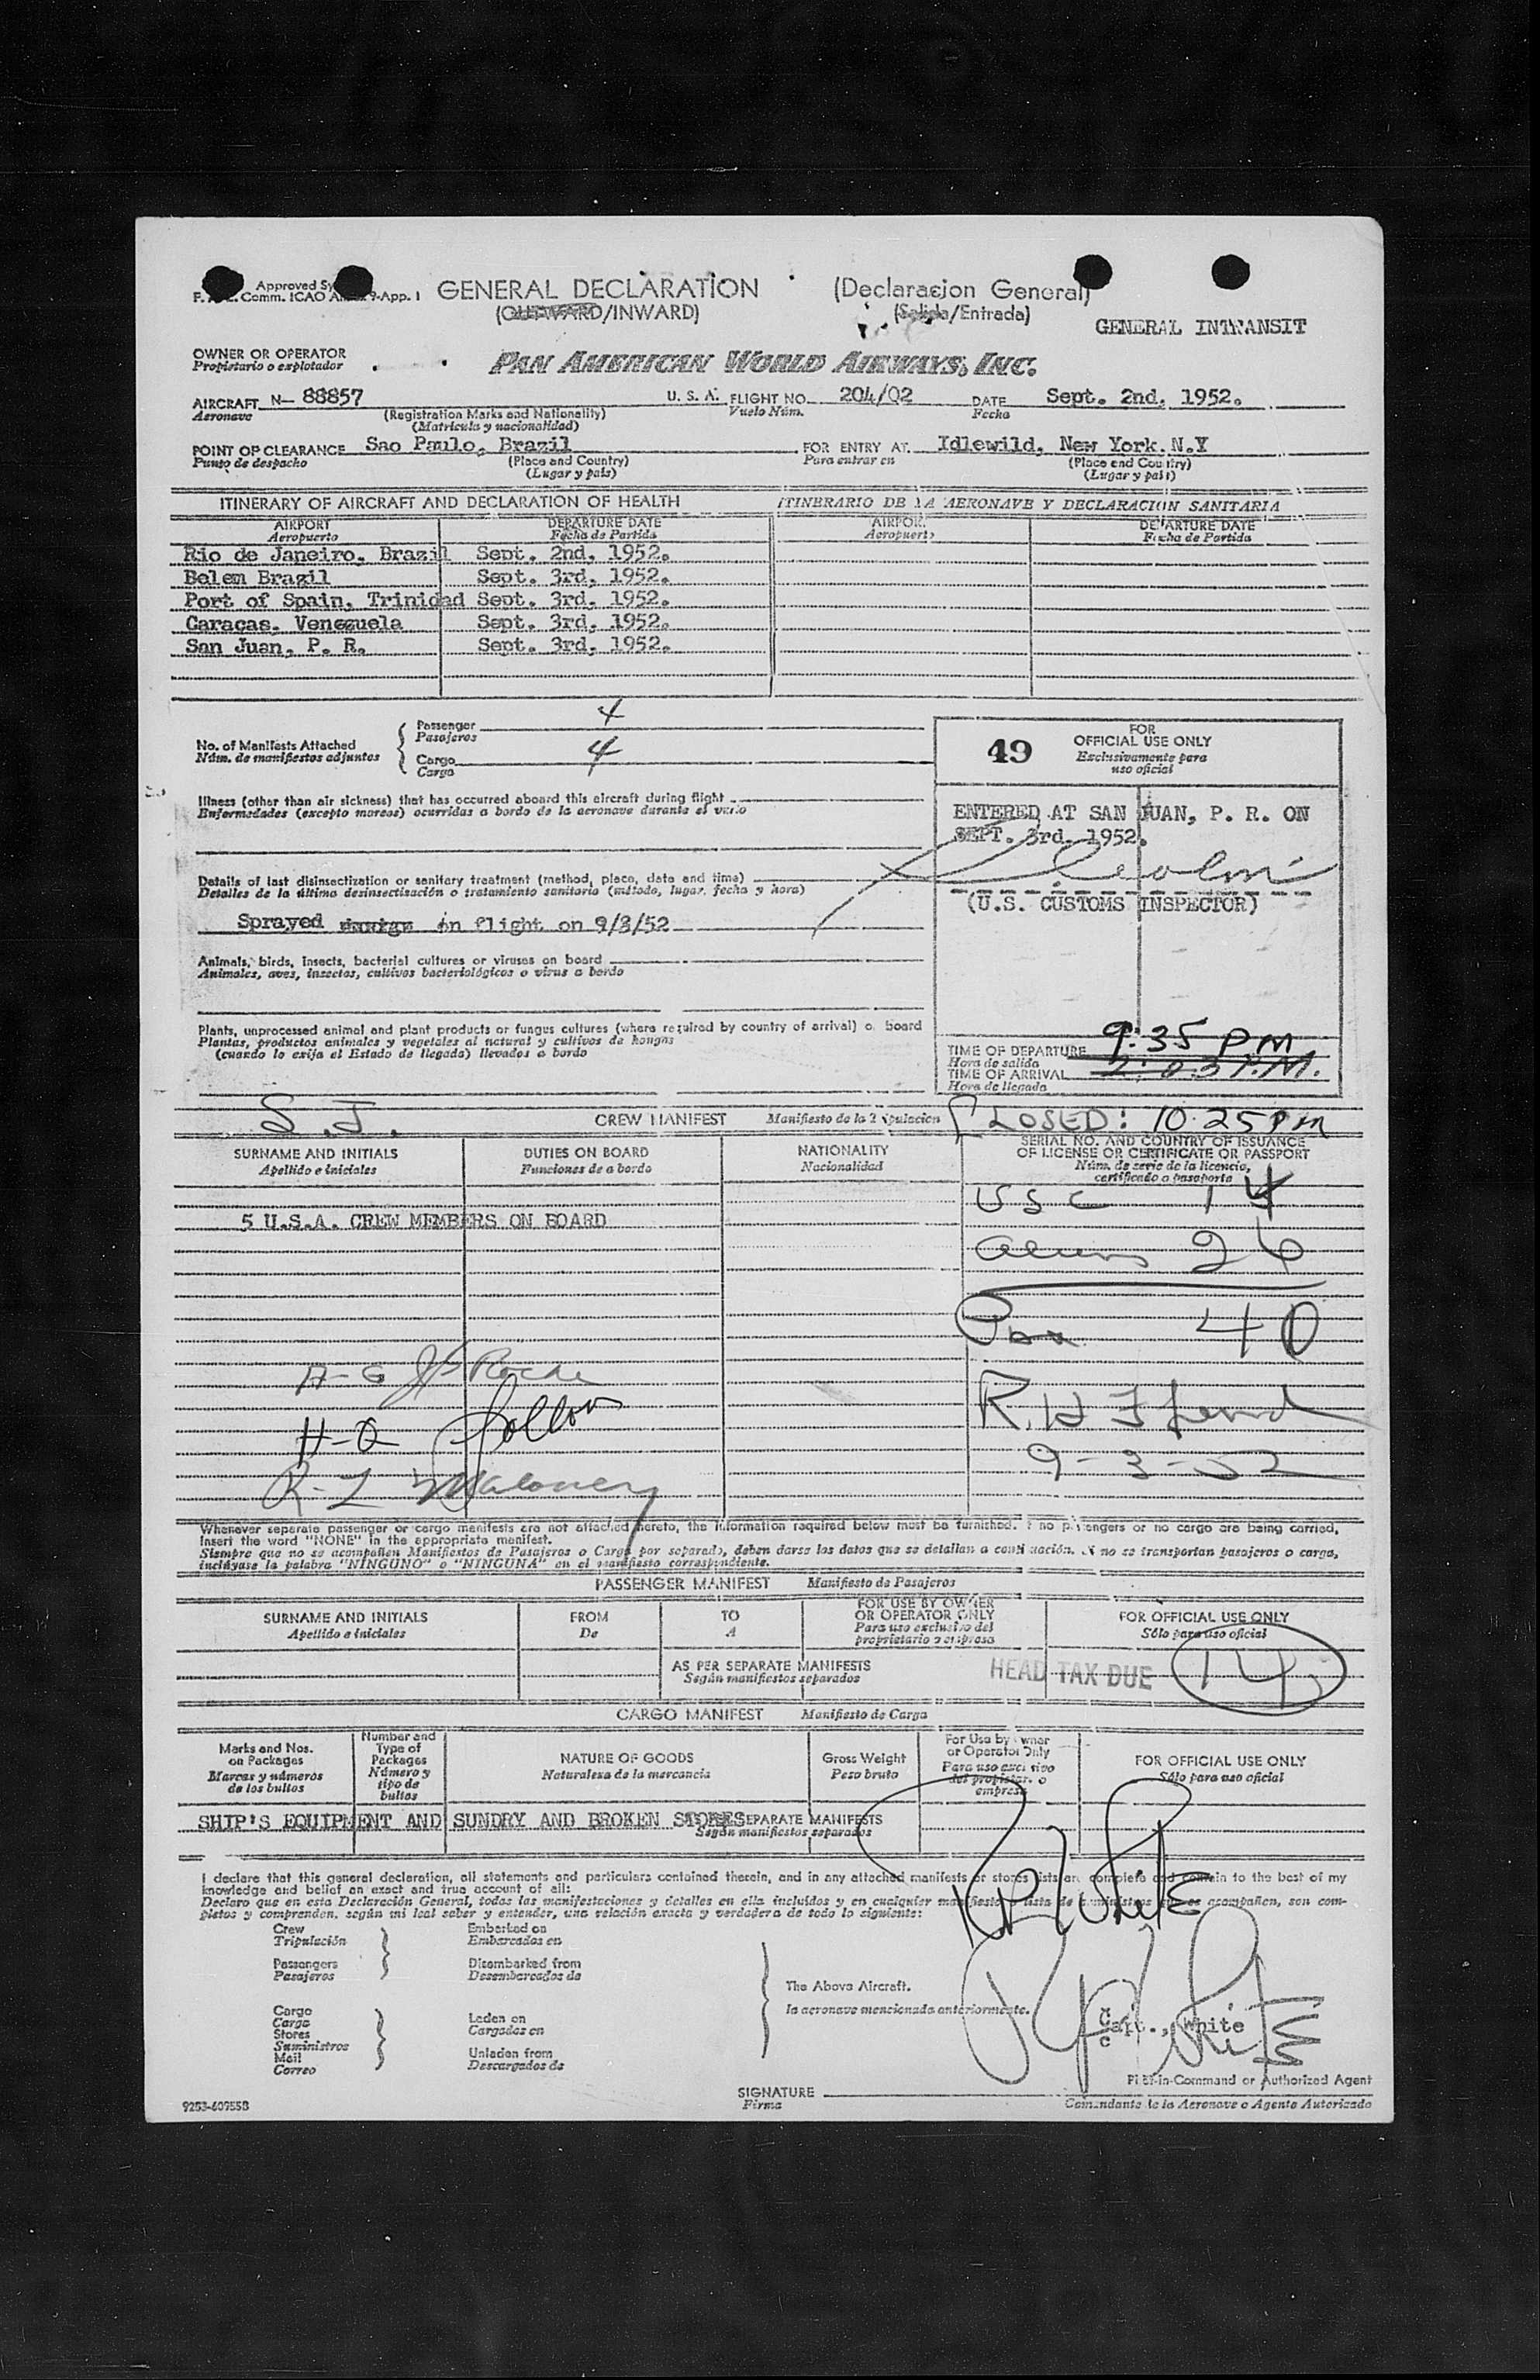 Approved
Comm. ICAO 9-App. 1
GENERAL DECLARATION (Declaracion General)
(OUTWARD/INWARD) (Salida/Entrada)
GENERAL INTRANSIT
OWNER OR OPERATOR
Propietario o explotador
PAN AMERICAN WORLD AIRWAYS, INC.
AIRCRAFT N- 88857 U. S. A. FLIGHT NO. 204/02 DATE Sept. 2nd, 1952.
Aeronave (Registration Marks and Nationality) Vuelo Núm. Fecha
(Matrícula y nacionalidad)
POINT OF CLEARANCE Sao Paulo, Brazil FOR ENTRY AT Idlewild, New York. N.Y
Punto de despacho (Place and Country) Para entrar en (Place and Country)
(Lugar y país) (Lugar y país)
ITINERARY OF AIRCRAFT AND DECLARATION OF HEALTH ITINERARIO DE LA AERONAVE Y DECLARACION SANITARIA
AIRPORT DEPARTURE DATE AIRPORT DEPARTURE DATE
Aeropuerto Fecha de Partida Aeropuerto Fecha de Partida
Rio de Janeiro, Brazil Sept. 2nd, 1952.
Belem Brazil Sept. 3rd, 1952.
Port of Spain, Trinidad Sept. 3rd, 1952.
Caracas, Venezuela Sept. 3rd, 1952.
San Juan, P. R. Sept. 3rd, 1952.
No. of Manifests Attached
Núm. de manifiestos adjuntos
Passenger 4
Pasajeros
Cargo 4
Cargo
49
FOR
OFFICIAL USE ONLY
Exclusivamente para
uso oficial
Illness (other than air sickness) that has occurred aboard this aircraft during flight
Enfermedades (excepto mareos) ocurridas a bordo de la aeronave durante el vuelo
ENTERED AT SAN JUAN, P. R. ON
SEPT. 3rd. 1952.
Details of last disinsectization or sanitary treatment (method, place, date and time)
Detalles de la última desinsectización o tratamiento sanitario (método, lugar, fecha y hora)
(U.S. CUSTOMS INSPECTOR)
Sprayed in flight on 9/3/52
Animals, birds, insects, bacterial cultures or viruses on board
Animales, aves, insectos, cultivos bacteriológicos o virus a bordo
Plants, unprocessed animal and plant products or fungus cultures (where required by country of arrival) on board
Plantas, productos animales y vegetales al natural y cultivos de hongos
(cuando lo exija el Estado de llegada) llevados a bordo
TIME OF DEPARTURE 9:35 PM
Hora de salida
TIME OF ARRIVAL 2:03 P.M.
Hora de llegada
S.J. CREW MANIFEST Manifiesto de la Tripulacion CLOSED: 10:25 PM
SURNAME AND INITIALS DUTIES ON BOARD NATIONALITY SERIAL NO. AND COUNTRY OF ISSUANCE
OF LICENSE OR CERTIFICATE OR PASSPORT
Apellido e iniciales Funciones de a bordo Nacionalidad Núm. de serie de la licencia,
certificado o pasaporte
USC 14
5 U.S.A. CREW MEMBERS ON BOARD
Aliens 26
Pax 40
A-G Roche
H-Q
R-L Maloney
R. H.
9-3-52
Whenever separate passenger or cargo manifests are not attached hereto, the information required below must be furnished. If no passengers or no cargo are being carried,
insert the word "NONE" in the appropriate manifest.
Siempre que no se acompañen Manifiestos de Pasajeros o Carga por separado, deben darse los datos que se detallan a continuación. Si no se transportan pasajeros o carga,
inclúyase la palabra "NINGUNO" o "NINGUNA" en el manifiesto correspondiente.
PASSENGER MANIFEST Manifiesto de Pasajeros
SURNAME AND INITIALS FROM TO FOR USE BY OWNER
OR OPERATOR ONLY FOR OFFICIAL USE ONLY
Apellido e iniciales De A Para uso exclusivo del
propietario o empresa Sólo para uso oficial
AS PER SEPARATE MANIFESTS
Según manifiestos separados
HEAD TAX DUE 14
CARGO MANIFEST Manifiesto de Carga
Marks and Nos.
on Packages
Marcas y números
de los bultos
Number and
Type of
Packages
Número y
tipo de
bultos
NATURE OF GOODS
Naturaleza de la mercancía
Gross Weight
Peso bruto
For Use by Owner
or Operator Only
Para uso exclusivo
del propietar. o
empresa
FOR OFFICIAL USE ONLY
Sólo para uso oficial
SHIP'S EQUIPMENT AND SUNDRY AND BROKEN STORES SEPARATE MANIFESTS
Según manifiestos separados
I declare that this general declaration, all statements and particulars contained therein, and in any attached manifests or stores lists are complete and contain to the best of my
knowledge and belief an exact and true account of all:
Declaro que en esta Declaración General, todas las manifestaciones y detalles en ella incluidos y en cualquier manifiesto o lista de suministros que se acompañen, son com-
pletos y comprenden, según mi leal saber y entender, una relación exacta y verdadera de todo lo siguiente:
Crew
Tripulación
Passengers
Pasajeros
Embarked on
Embarcados en
Disembarked from
Desembarcados de
Cargo
Carga
Stores
Suministros
Mail
Correo
Laden on
Cargados en
Unladen from
Descargados de
The Above Aircraft.
la aeronave mencionada anteriormente.
White
Capt., White
Pilot-in-Command or Authorized Agent
SIGNATURE
Firma
Comandante de la Aeronave o Agente Autorizado
9253-609558